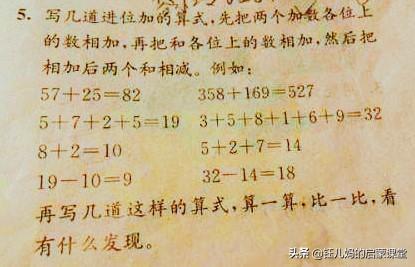 5. 写几道进位加的算式,先把两个加数各位上
的数相加,再把和各位上的数相加,然后把
相加后两个和相减。例如:
57+25=82 358+169=527
5+7+2+5=19 3+5+8+1+6+9=32
8+2=10 5+2+7=14
19-10=9 32-14=18
再写几道这样的算式,算一算,比一比,看
有什么发现。
头条 @钰儿妈的启蒙课堂